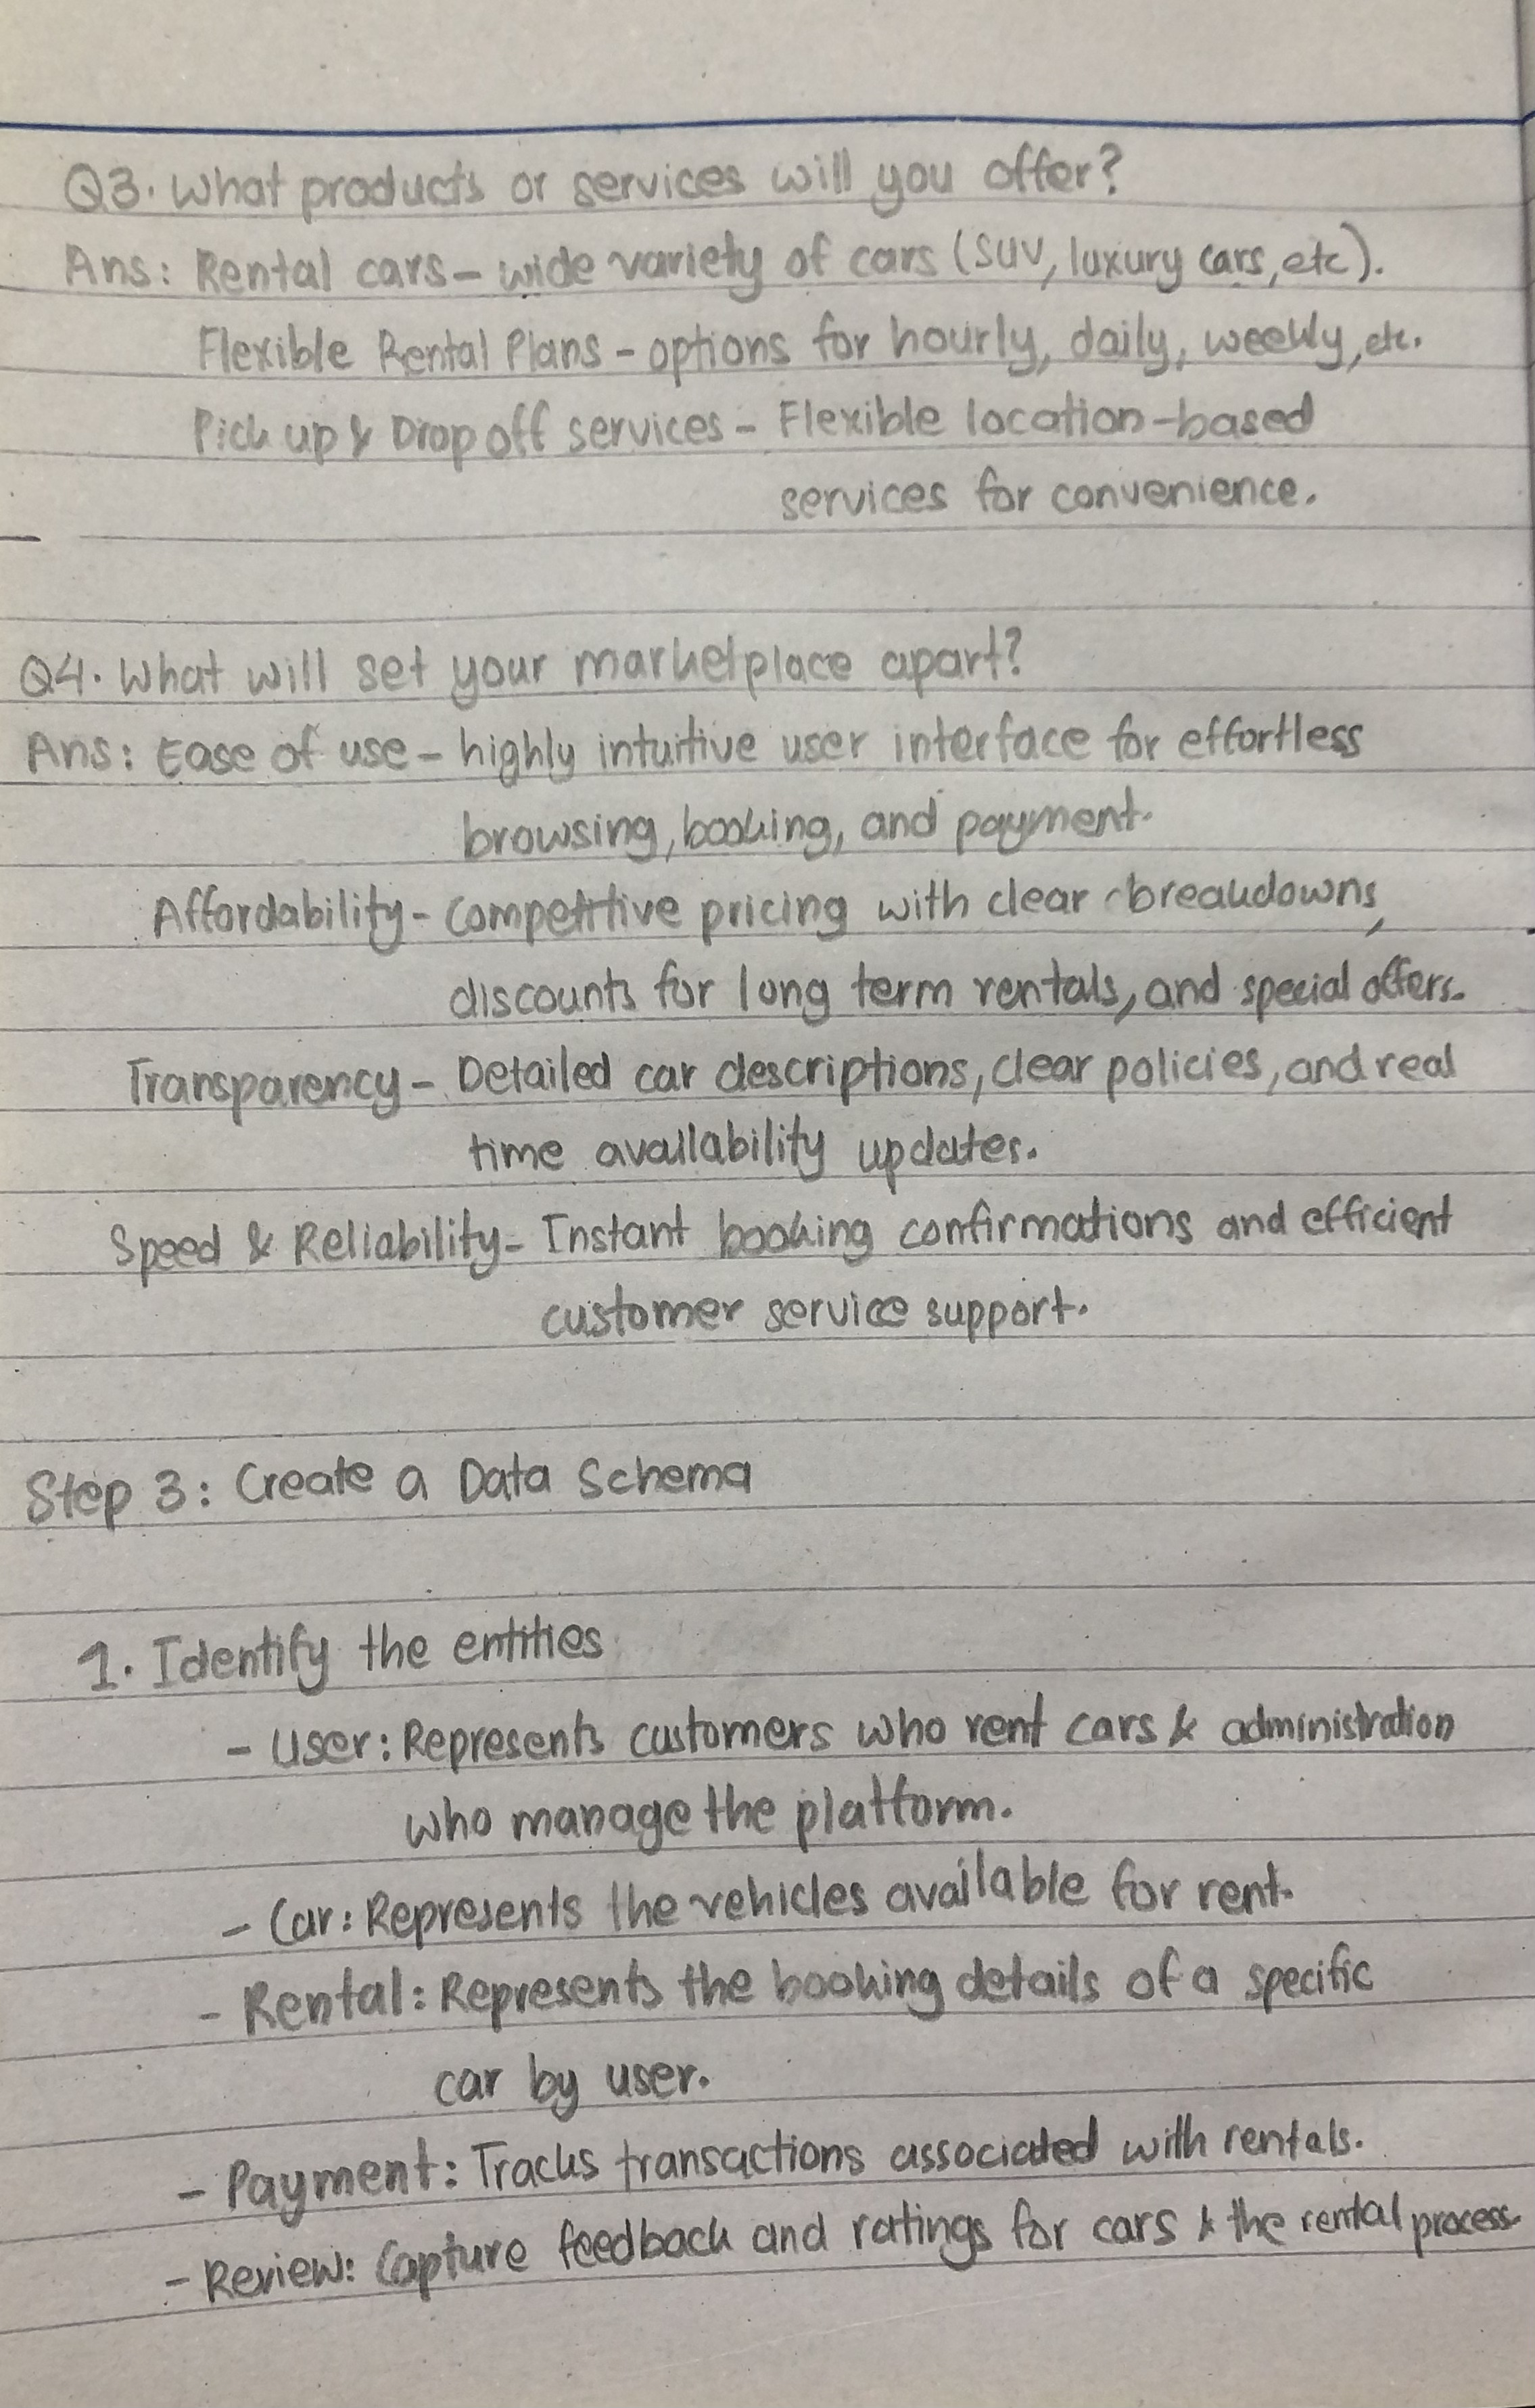 Q3. What products or services will you offer?
Ans: Rental cars - wide variety of cars (SUV, luxury cars, etc).
Flexible Rental Plans - options for hourly, daily, weekly, etc.
Pick up & Drop off services - Flexible location-based
services for convenience.
Q4. What will set your marketplace apart?
Ans: Ease of use - highly intuitive user interface for effortless
browsing, booking, and payment.
Affordability - Competitive pricing with clear breakdowns,
discounts for long term rentals, and special offers.
Transparency - Detailed car descriptions, clear policies, and real
time availability updates.
Speed & Reliability - Instant booking confirmations and efficient
customer service support.
Step 3: Create a Data Schema
1. Identify the entities
- User: Represents customers who rent cars & administration
who manage the platform.
- Car: Represents the vehicles available for rent.
- Rental: Represents the booking details of a specific
car by user.
- Payment: Tracks transactions associated with rentals.
- Review: Capture feedback and ratings for cars & the rental process.